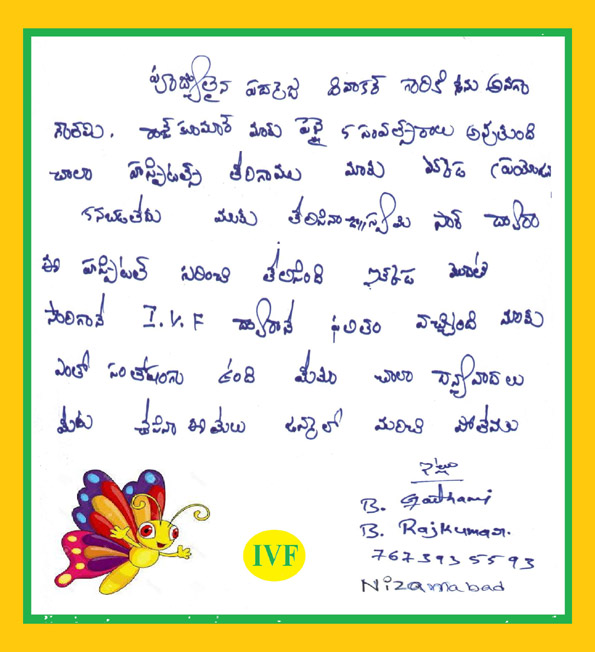 పూజ్యులైన పద్మజ దివాకర్ గారికి నేను అనగా
గౌతమి. రాజ్ కుమార్ మాకు పెళ్లై 5 సంవత్సరాలు అవుతుంది
చాలా హాస్పిటల్స్ తిరినాము మాకు ఎక్కడ ప్రయోజనం
కనబడలేదు మాకు తెలిసిన స్వామి సార్ ద్వారా
ఈ హాస్పిటల్ గురించి తెలిసింది ఇక్కడ మొదటి
సారిగానే I.V.F ద్వారానే ఫలితం వచ్చింది మాకు
ఎంతో సంతోషంగా ఉంది మీకు చాలా ధన్యవాదలు
మీరు చేసిన ఈ మేలు జన్మలో మరిచి పోలేము
ఇట్లు
B. Gouthami
B. Rajkumar.
7673935593
Nizamabad
IVF